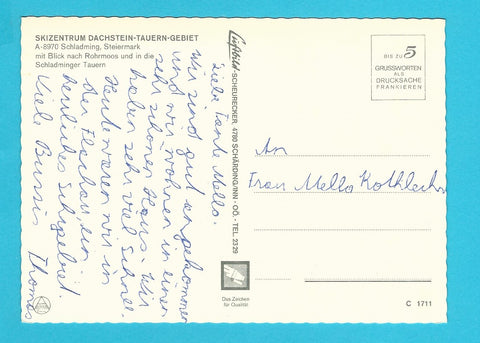 SKIZENTRUM DACHSTEIN-TAUERN-GEBIET
A-8970 Schladming, Steiermark
mit Blick nach Rohrmoos und in die
Schladminger Tauern
Liebe Tante Mella.
Wir sind gut angekommen
und wir wohnen in einem
sehr schönen Haus. Wir
haben sehr viel Schnee.
Heute waren wir in
der Flachau ein
herrliches Schigebiet.
Viele Bussis Thomas
Luftbild-SCHEURECKER, 4780 SCHÄRDING/INN · OÖ. - TEL. 2329
BIS ZU 5
GRUSSWORTEN
ALS
DRUCKSACHE
FRANKIEREN
An
Frau Mella
Das Zeichen
für Qualität
C 1711